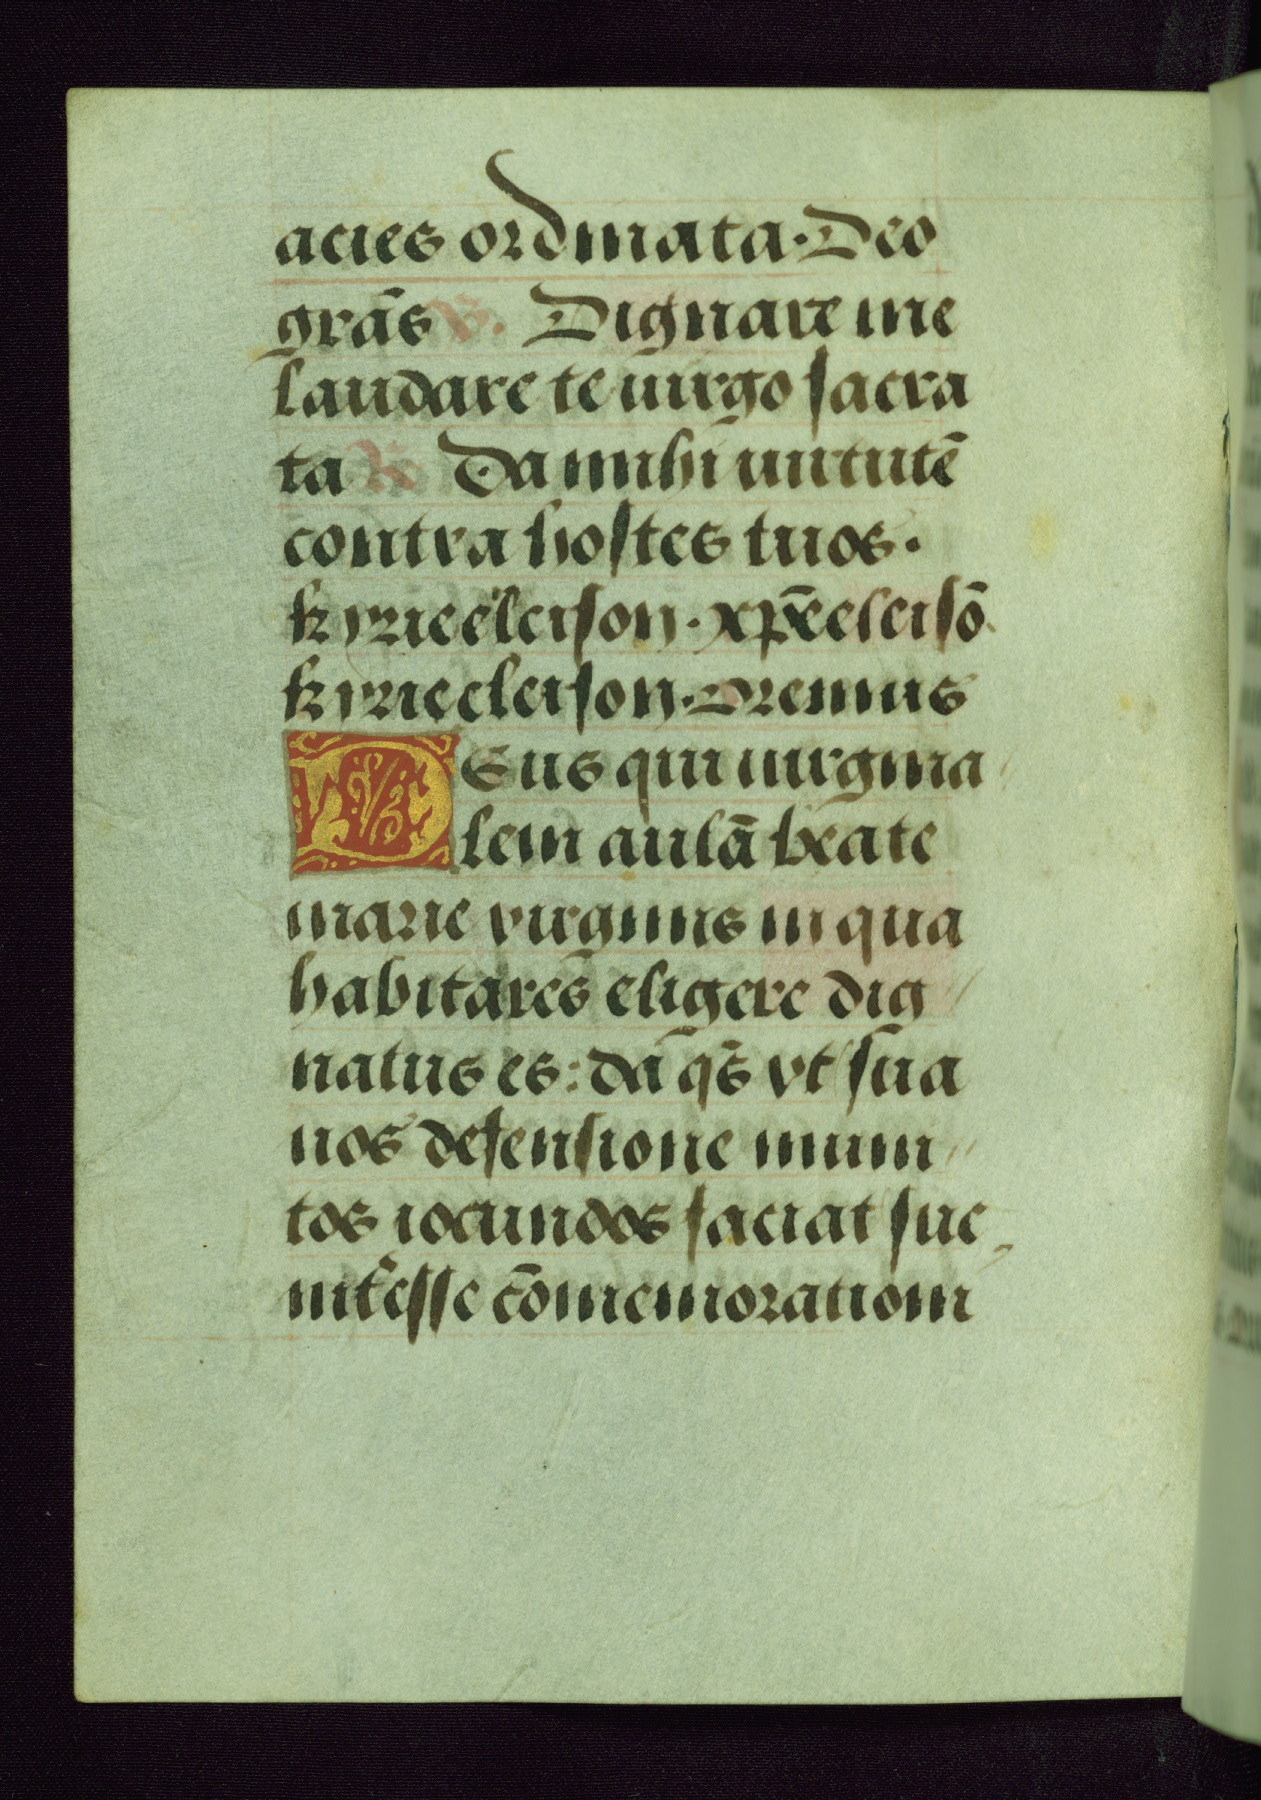 acies ordinata. Deo
grãs ℣. Dignare me
laudare te uirgo sacra
ta ℟ Da mihi uirtutẽ
contra hostes tuos.
kyrieeleison. xp̃eeleisõ
kyrieeleison. Oremus
Deus qui uirgina
lem aulã beate
marie virginis in qua
habitares eligere dig
natus es: da q̃s vt sua
nos defensione muni
tos iocundos faciat sue
int̃esse cõmemorationi